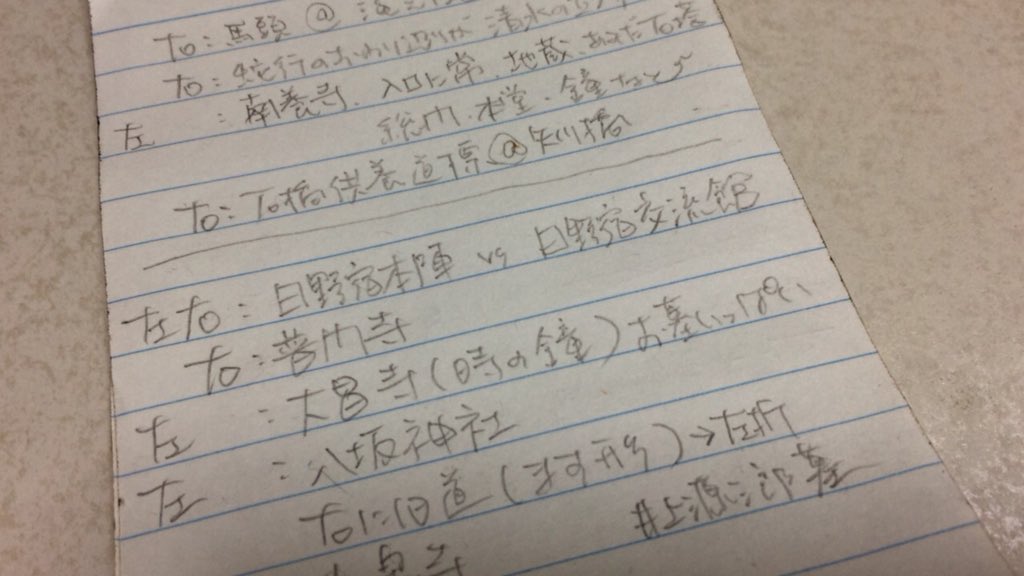 右：馬頭 @
右：蛇行のおわり辺りが 清水の
左：南養寺、入口に常、地蔵、あみだ石塔
総門、本堂、鐘などう
右：石橋供養道標 @ 矢川橋
左右：日野宿本陣 vs 日野宿交流館
右：普門寺
左：大昌寺（時の鐘）お墓いっぱい
左：八坂神社
右に旧道（ます形）→左折
井上源三郎墓